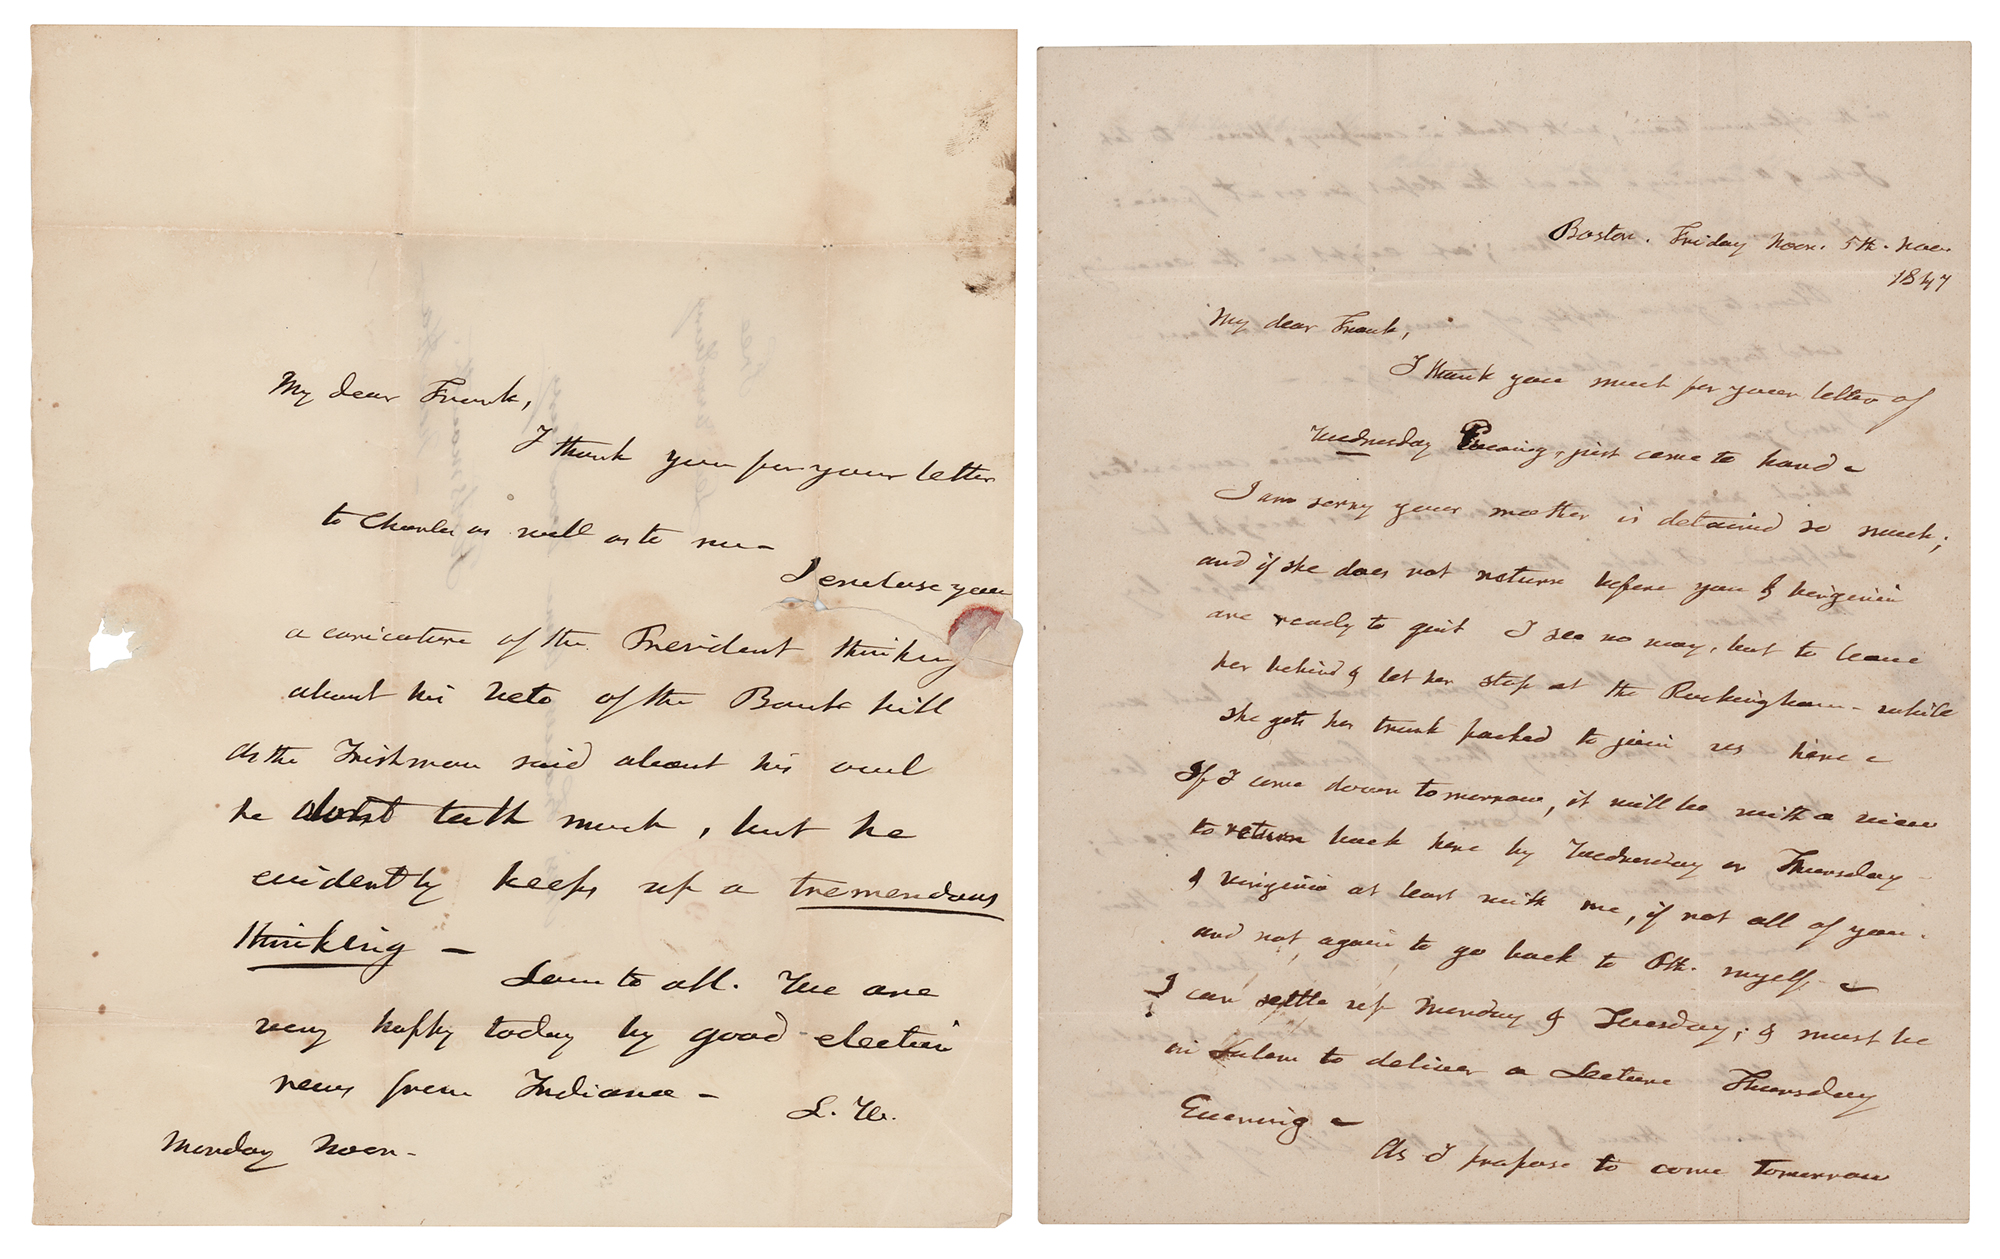 My dear Frank,
I thank you for your letter
to Charles as well as to me –
I enclose you
a caricature of the President thinking
about his Veto of the Bank bill
As the Irishman said about his owl
he dont talk much, but he
evidently keeps up a tremendous
thinking –
Love to all. We are
very happy today by good election
news from Indiana –
L. W.
Monday Noon –
Boston. Friday Noon. 5th. Nov.
1847
My dear Frank,
I thank you much for your letter of
Wednesday Evening, just come to hand –
I am sorry your mother is detained so much;
and if she does not return before you & Virginia
are ready to quit I see no way, but to leave
her behind & let her stop at the Rockingham – while
she gets her trunk packed to join us here –
If I come down tomorrow, it will be with a view
to return back here by Wednesday or Thursday –
& Virginia at least with me, if not all of you.
and not again to go back to Pth. myself –
I can settle up Monday & Tuesday; & must be
in Salem to deliver a Lecture Thursday
Evening –
As I propose to come tomorrow